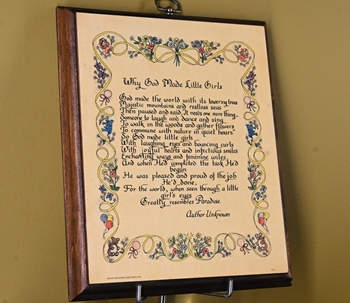 Why God Made Little Girls
God made the world with its towering trees
Majestic mountains and restless seas
Then paused and said, It needs one more thing...
Someone to laugh and dance and sing
To walk in the woods and gather flowers
To commune with nature in quiet hours"
So God made little girls
With laughing eyes and bouncing curls
With joyful hearts and infectious smiles
Enchanting ways and feminine wiles
And when He'd completed the task He'd
begun
He was pleased and proud of the job
He'd done,
For the world, when seen through a little
girl's eyes
Greatly resembles Paradise.
Author Unknown